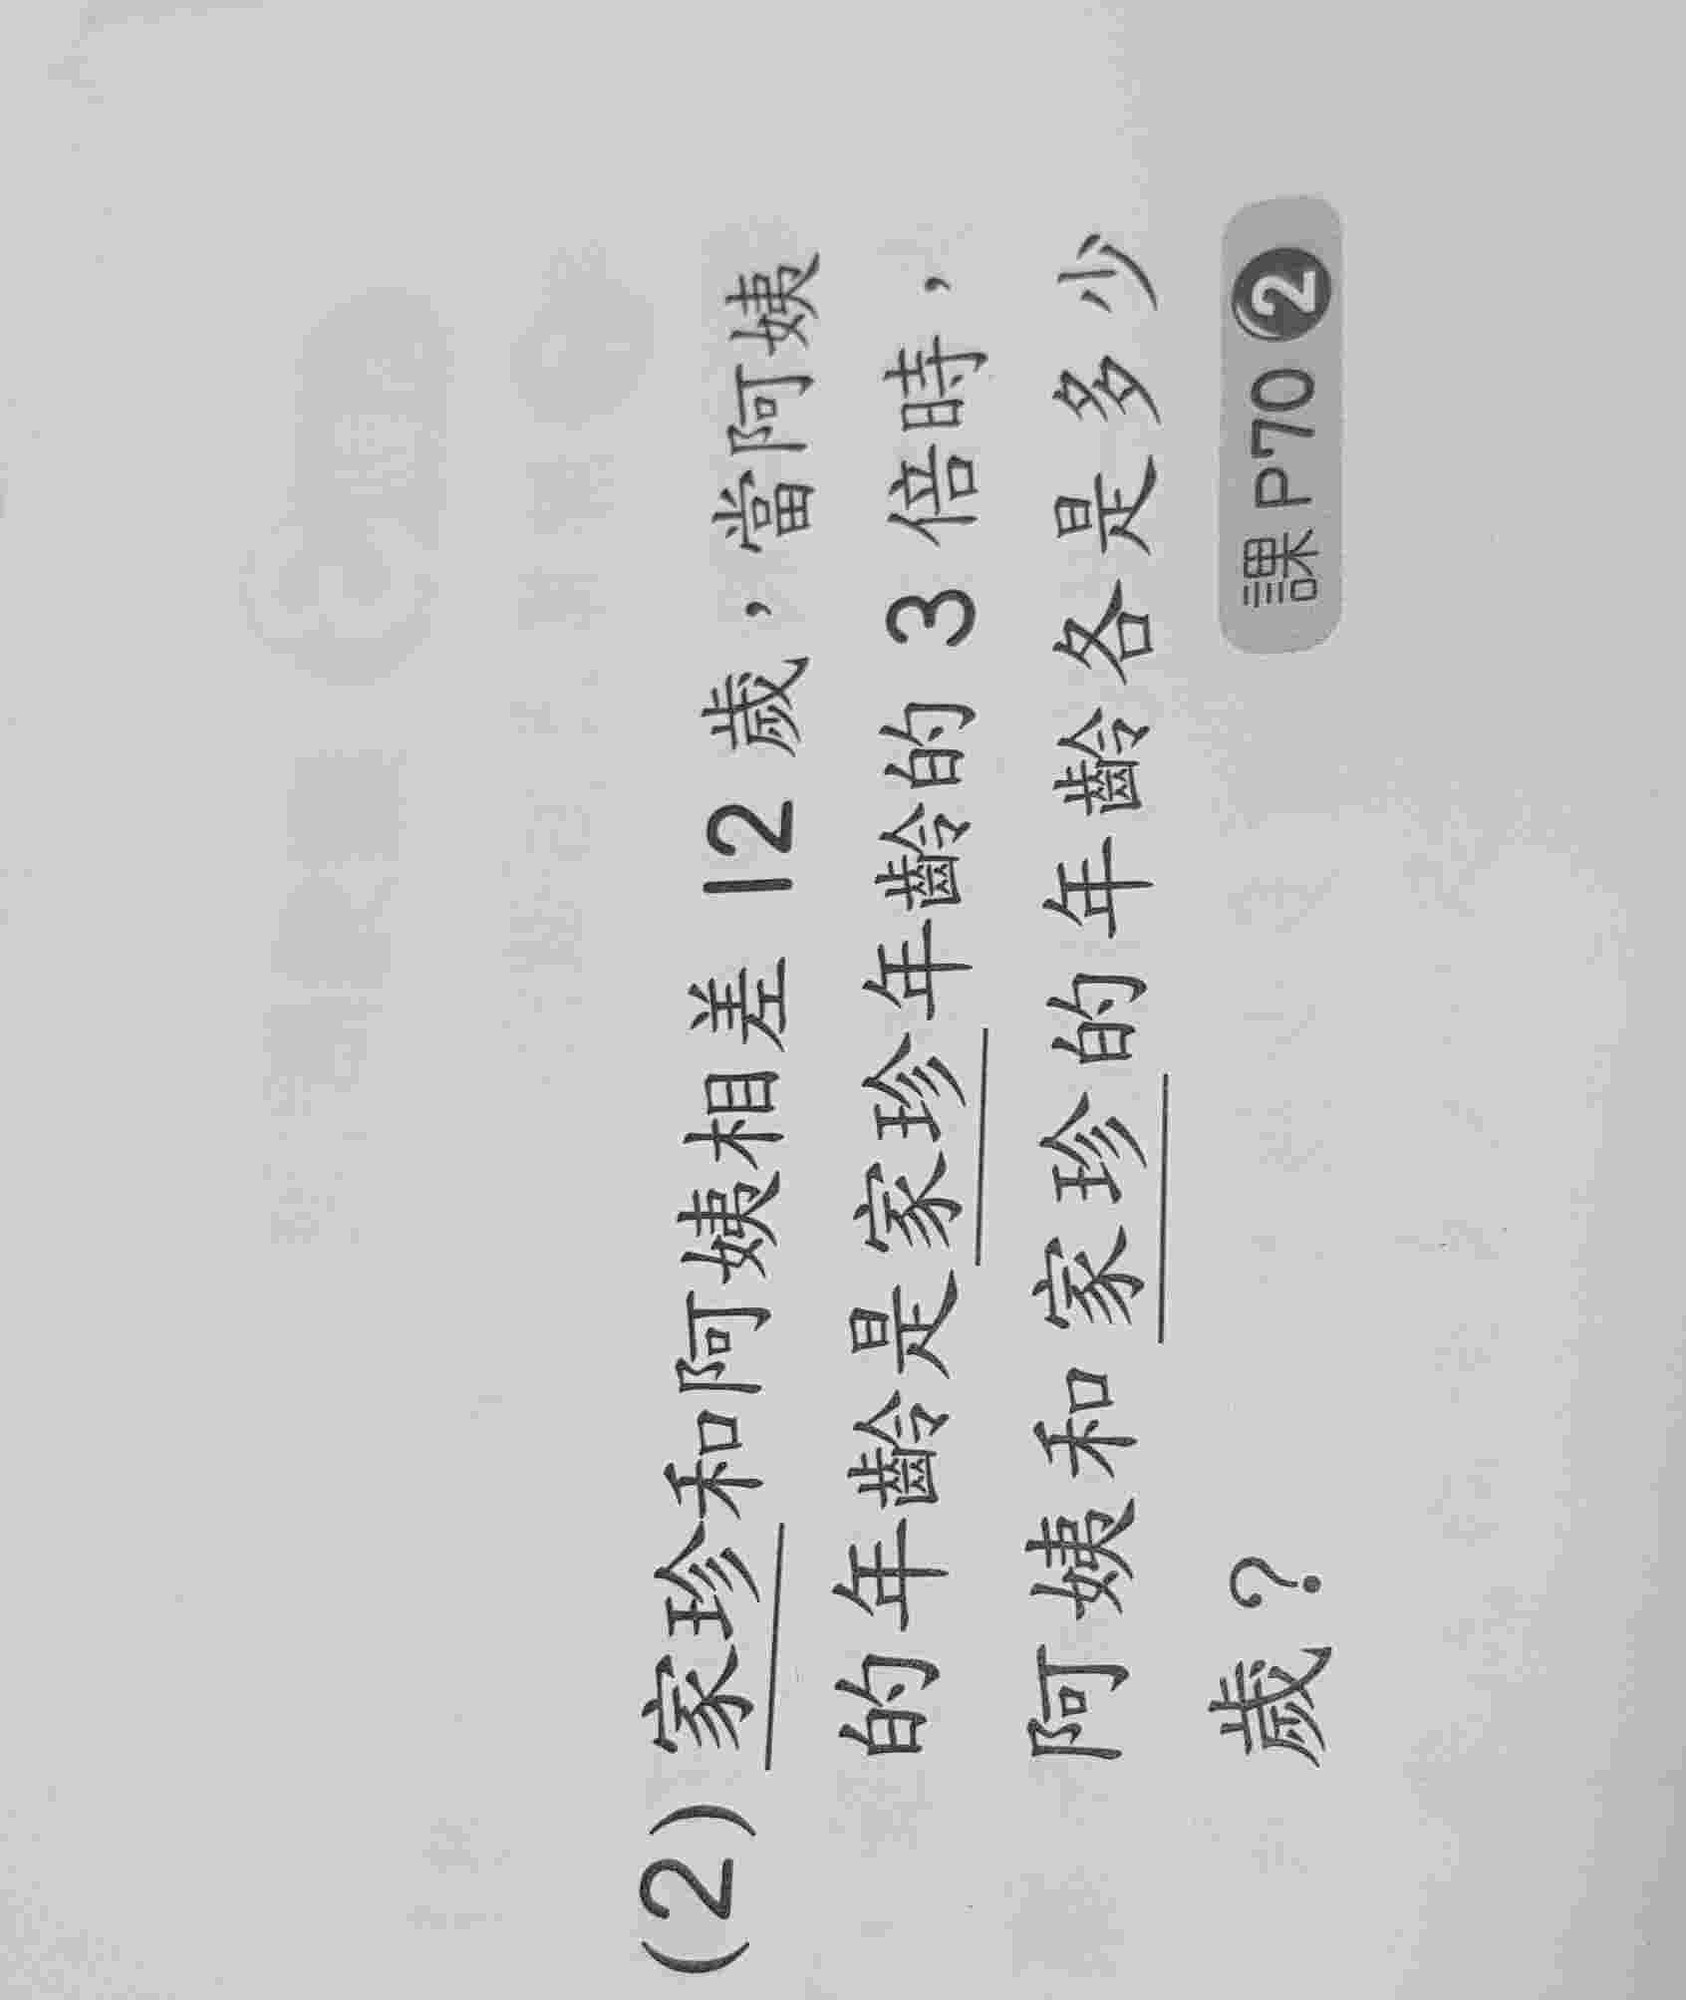 (2) 家珍和阿姨相差 12 歲，當阿姨
的年齡是家珍年齡的 3 倍時，
阿姨和家珍的年齡各是多少
歲？
課 P70 2